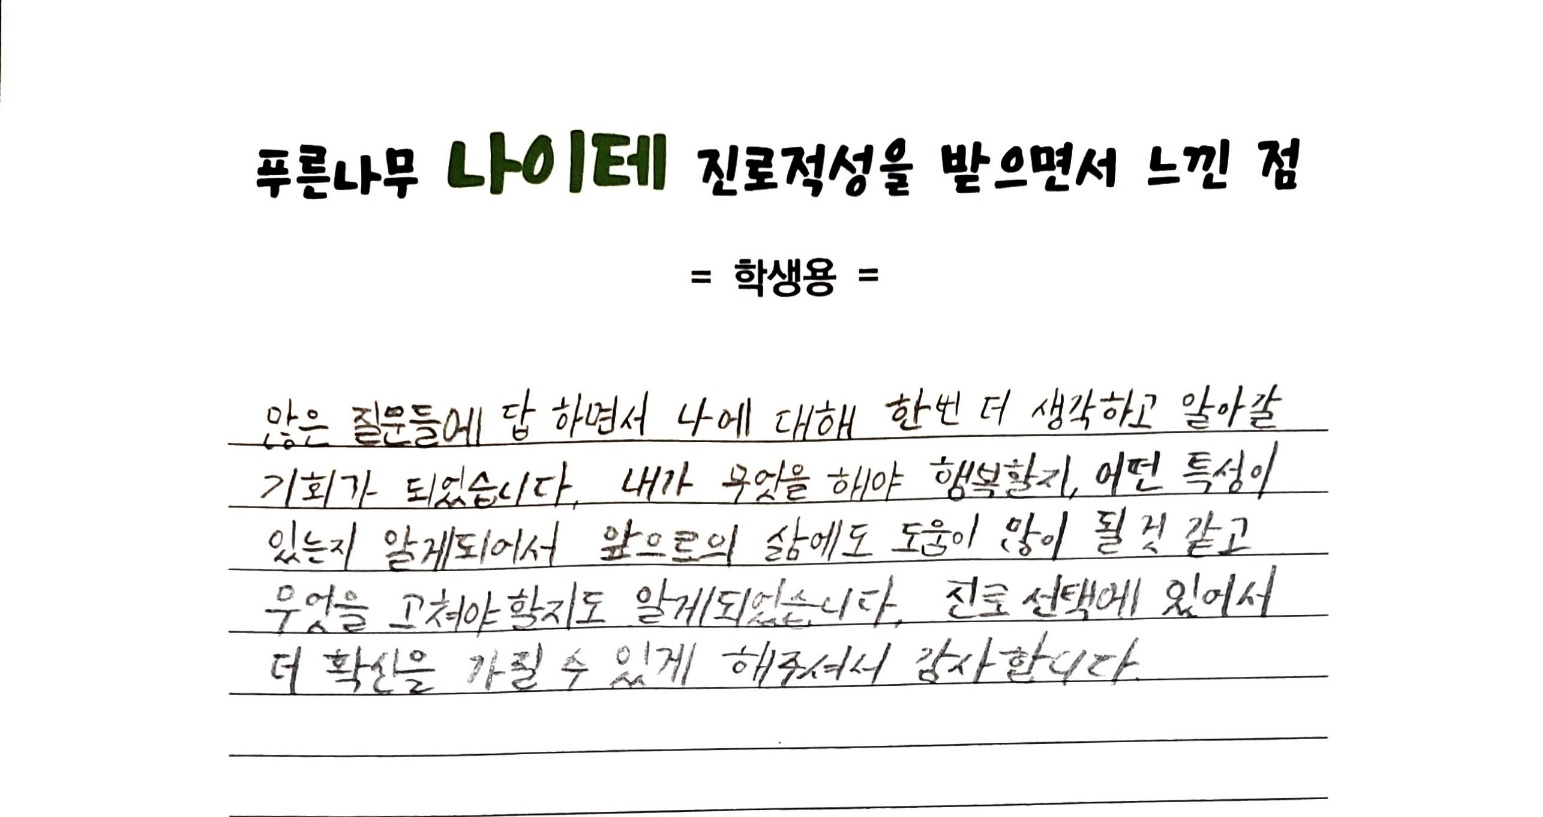 푸른나무 나이테 진로적성을 받으면서 느낀 점
= 학생용 =
많은 질문들에 답 하면서 나에 대해 한번 더 생각하고 알아갈
기회가 되었습니다. 내가 무엇을 해야 행복할지, 어떤 특성이
있는지 알게되어서 앞으로의 삶에도 도움이 많이 될 것 같고
무엇을 고쳐야 할지도 알게되었습니다. 진로 선택에 있어서
더 확신을 가질 수 있게 해주셔서 감사합니다.